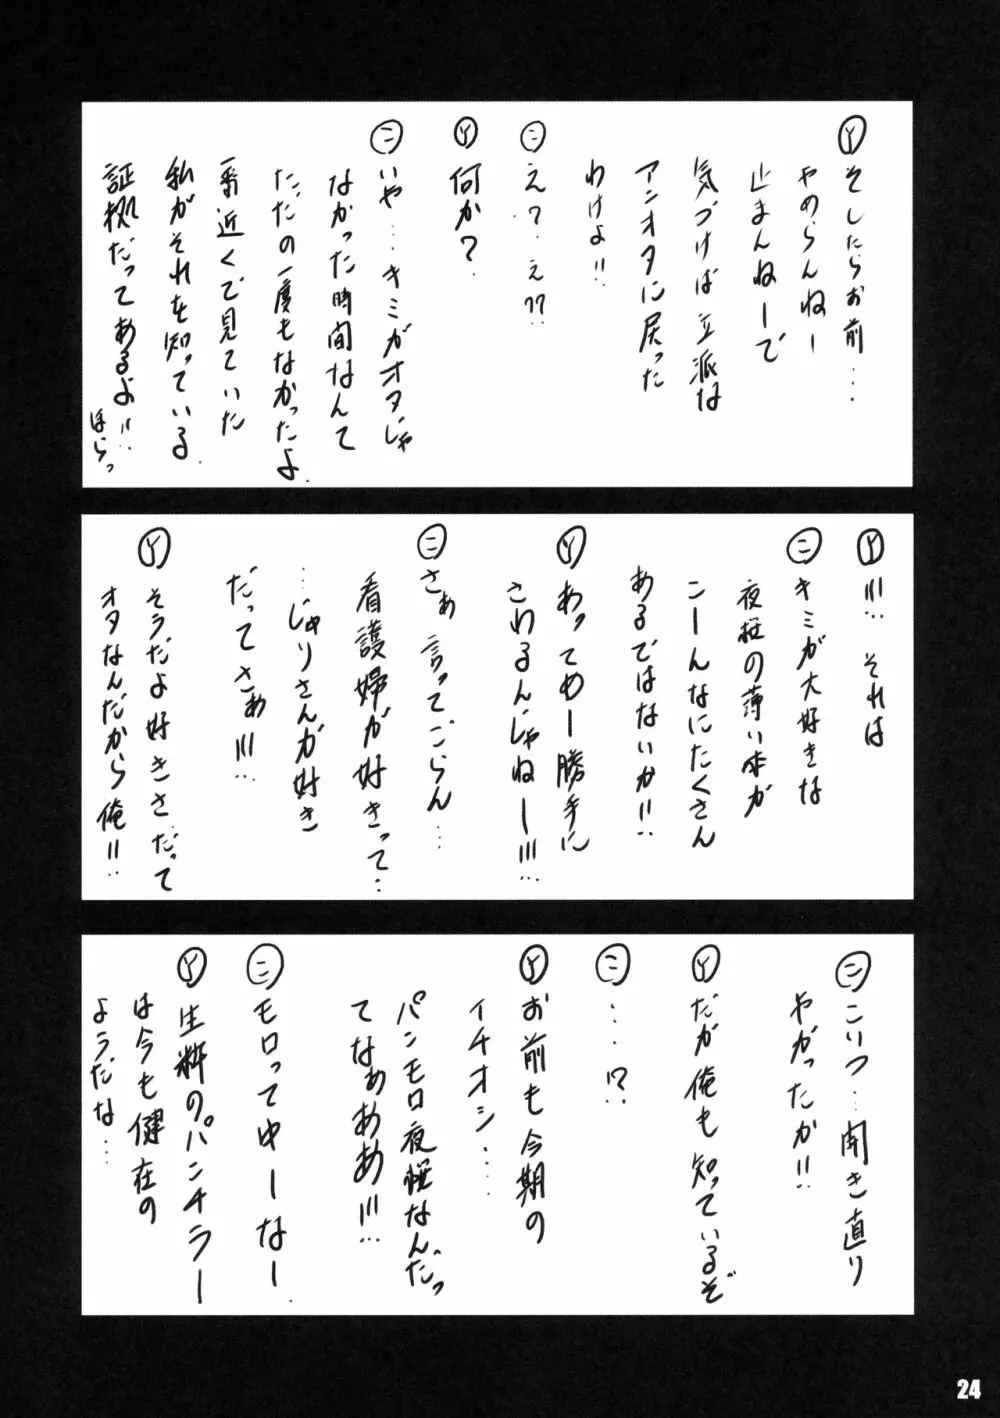 Ⓨ そしたらお前…
やめらんねー
止まんねーで
気づけば立派な
アンオタに戻った
わけよ!!
㊁ え?…え??
Ⓨ 何か?
㊁ いや…キミがオタじゃ
なかった時間なんて
ただの一度もなかったよ
一番近くで見ていた
私がそれを知っている
証拠だってあるよ!!
ほらっ
Ⓨ !!! それは
㊁ キミが大好きな
夜桜の薄い本が
こーんなにたくさん
あるではないか!!
Ⓨ あってめー勝手に
さわるんじゃねー!!!
㊁ さぁ 言ってごらん…
看護婦が好きって…
…じゅりさんが好き
だってさぁ!!!
Ⓨ そうだよ好きさだって
オタなんだから俺!!
㊁ こいつ…開き直り
やがったか!!
Ⓨ だが俺も知っているぞ
㊁ …!?
Ⓨ お前も今期の
イチオシ……
パンモロ夜桜なんだっ
てなぁぁあ!!!
㊁ モロってゆーなー
Ⓨ 生粋のパンチラー
は今も健在の
ようだな…
24